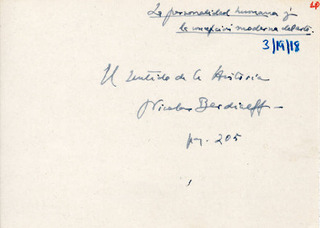 La personalidad humana y
la concepción moderna del arte.
3/19/18
El sentido de la Historia
Nicolas Berdiaeff
pg. 205